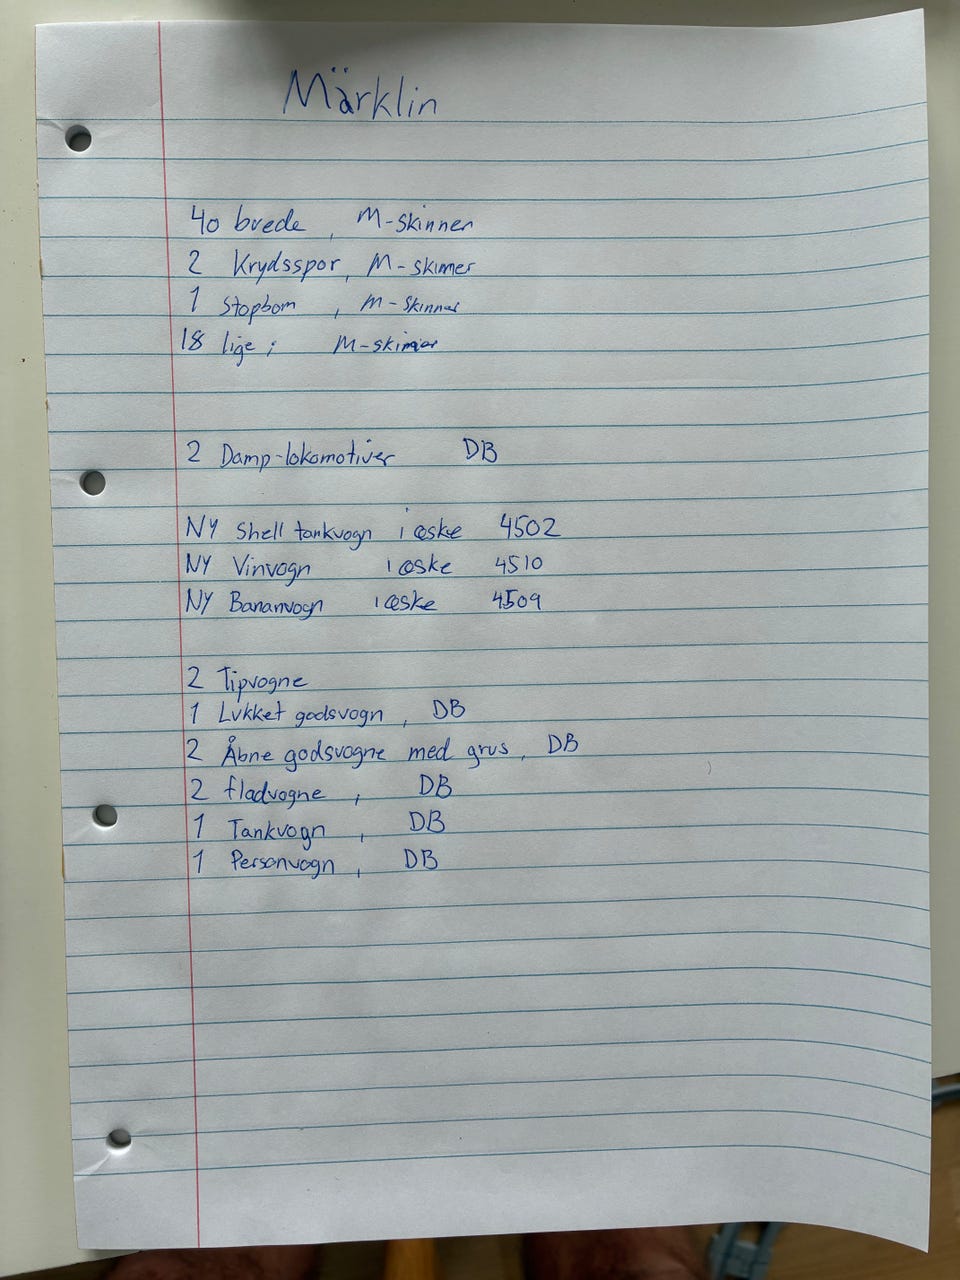 Märklin
40 buede, M-skinner
2 Krydsspor, M-skinner
1 Stopbom, M-skinner
18 lige; M-skinner
2 Damp-lokomotiver DB
NY Shell tankvogn i æske 4502
NY Vinvogn i æske 4510
NY Bananvogn i æske 4509
2 Tipvogne
1 Lukket godsvogn, DB
2 Åbne godsvogne med grus, DB
2 fladvogne, DB
1 Tankvogn, DB
1 Personvogn, DB